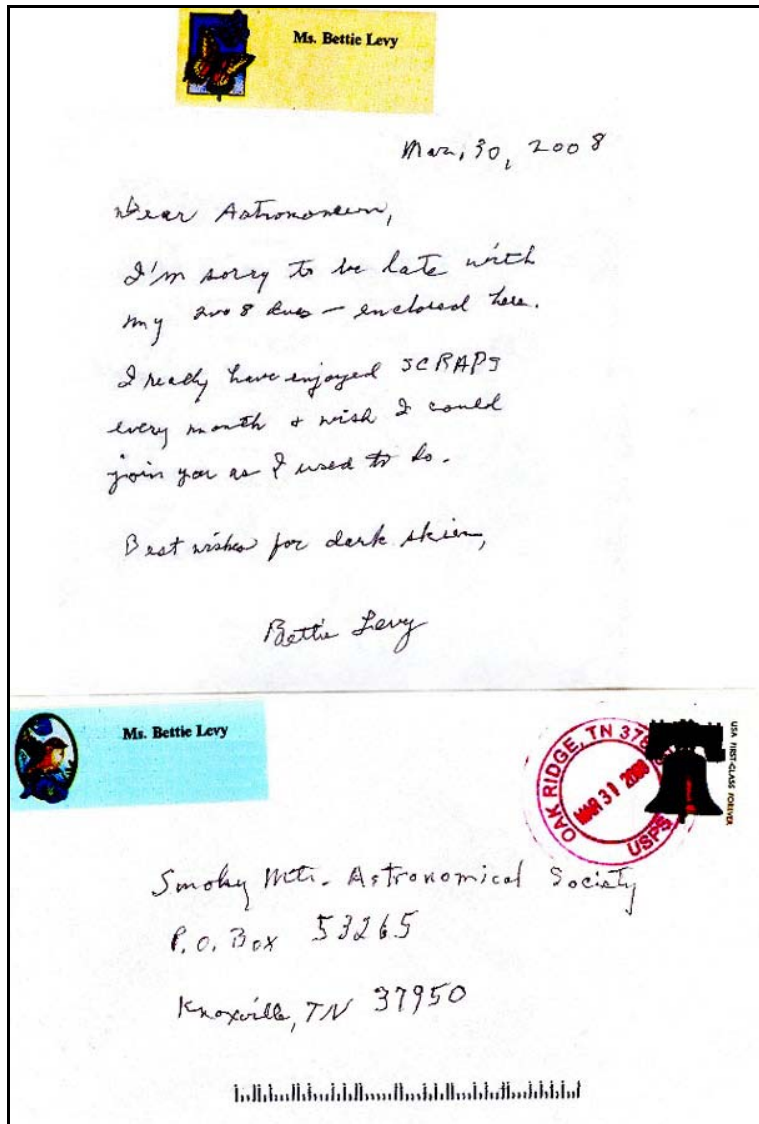 Ms. Bettie Levy
Mar. 30, 2008
Dear Astronomers,
I'm sorry to be late with
my 2008 dues – enclosed here.
I really have enjoyed SCRAPS
every month & wish I could
join you as I used to do.
Best wishes for dark skies,
Bettie Levy
Ms. Bettie Levy
OAK RIDGE, TN
MAR 31 2008
USPS
USA FIRST-CLASS FOREVER
Smoky Mtn. Astronomical Society
P.O. Box 53265
Knoxville, TN 37950